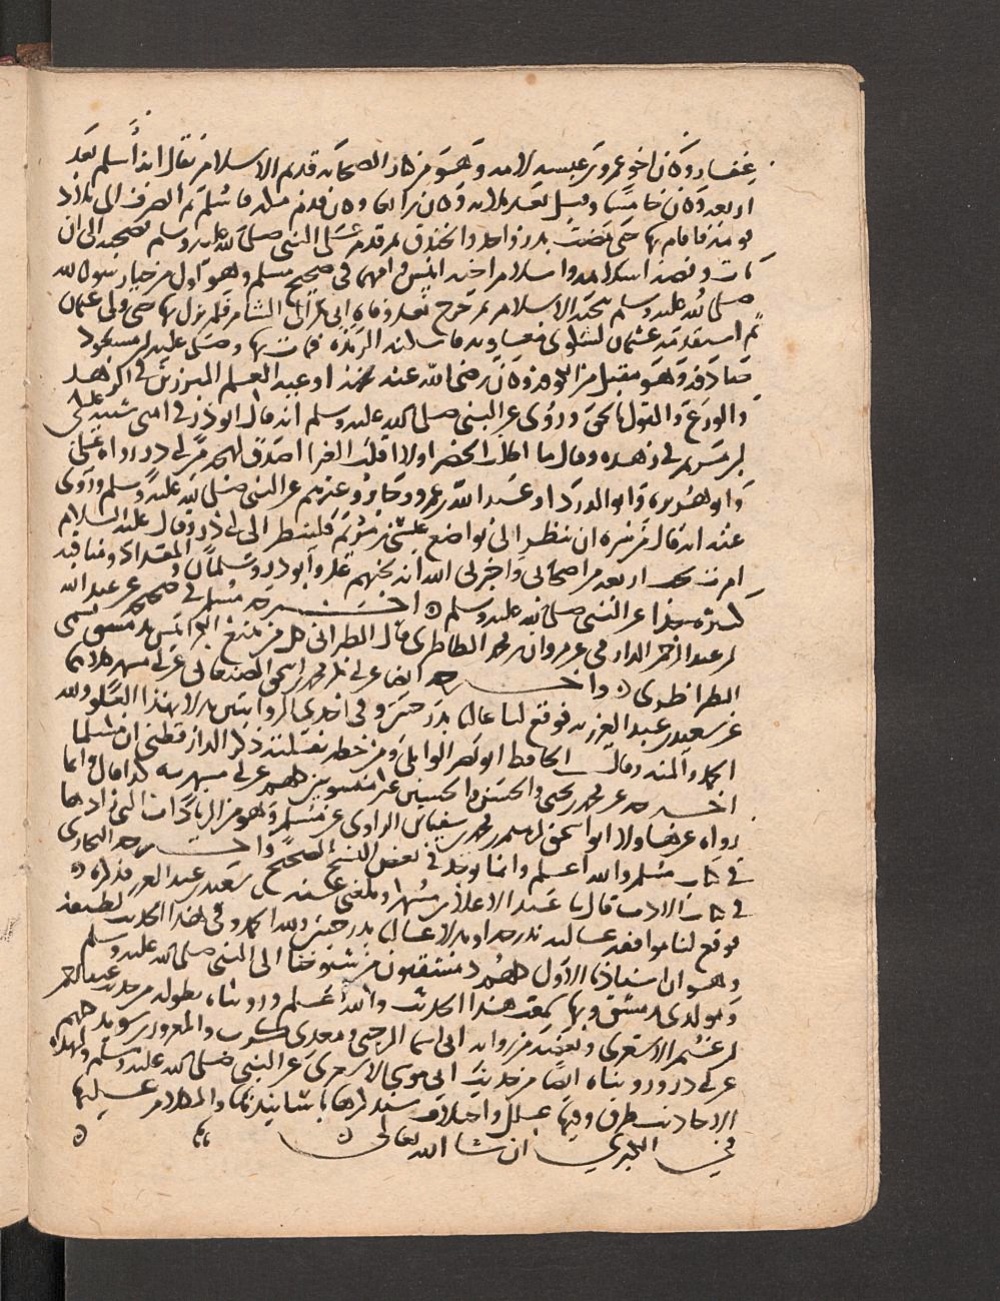 غفار وكان اخو عمرو بن عبسة لامه وهو من كبار الصحابة قديم الاسلام يقال انه اسلم بعد
اربعة وكان خامسا وقيل بعد ثلاثة وكان رابعا وكان قدم مكة فاسلم ثم انصرف الى بلاد
قومه فاقام بها حتى مضت بدر واحد والخندق ثم قدم على النبي صلى الله عليه وسلم فصحبه الى ان
مات وقصة اسلامه واسلام اخيه انيس وامهما في صحيح مسلم وهو اول من حيا رسول الله
صلى الله عليه وسلم بتحية الاسلام ثم خرج بعد وفاة ابي بكر الى الشام فلم يزل بها حتى ولي عثمان
ثم استقدمه عثمان لشكوى معاوية فاسكنه الربذة فمات بها وصلى عليه ابن مسعود
صادفه وهو مقبل من الكوفة وكان رضي الله عنه من اوعية العلم المبرزين في الزهد
والورع والقول بالحق وروي عن النبي صلى الله عليه وسلم انه قال ابو ذر في امتي شبيه عيسى
ابن مريم في زهده وقال ما اظلت الخضراء ولا اقلت الغبرا اصدق لهجة من ابي ذر رواه علي
وابو هريرة وابو الدرداء وعبد الله بن عمرو وجابر وغيرهم عن النبي صلى الله عليه وسلم وروى
عنه انه قال من سره ان ينظر الى تواضع عيسى بن مريم فلينظر الى ابي ذر وقال عليه السلام
امرت بحب اربعة من اصحابي واخبرني الله انه يحبهم علي وابو ذر وسلمان والمقداد ومناقبه
كثيرة جدا عن النبي صلى الله عليه وسلم ٥ اخرجه مسلم في صحيحه عن عبد الله
ابن عبد الرحمن الدارمي عن مروان بن محمد الطاطري قال الطبراني كل من يبيع الكرابيس بدمشق يسمى
الطاطري ٥ واخرجه ايضا عن ابي بكر محمد بن اسحق الصنعاني عن ابي مسهر كلاهما
عن سعيد بن عبد العزيز به فوقع لنا عاليا بدرجتين وفي احدى الروايتين بدلا بهذا العلو ولله
الحمد والمنة وقال الحافظ ابو نصر الوايلي ومن خطه نقلت ذكر الدارقطني ان مسلما
اخرجه عن محمد بن يحيى والحسن والحسين ابني عيسى عن ابي مسهر به كذا قال وانما
رواه عنهما ولا ابو اسحق ابراهيم بن محمد بن سفيان الراوي عن مسلم وهو من الزيادات التي زادها
في كتاب مسلم والله اعلم وانما يوجد في بعض النسخ الصحيح واخرجه البخاري
في كتاب الادب قال ثنا عبد الاعلى بن مسهر او بلغني عنه ثنا سعيد بن عبد العزيز فذكره ٥
فوقع لنا موافقة عالية بدرجة او بدلا عاليا بدرجتين ولله الحمد وفي هذا الحديث لطيفة
وهو ان اسنادنا الاول كلهم دمشقيون من شيوخنا الى النبي صلى الله عليه وسلم
ومولدي دمشق وبها سمعت هذا الحديث والله اعلم وروينا بطوله من حديث عبد الرحمن
ابن غنم الاشعري وبعضه من رواية ابي اسما الرحبي ومعدي كرب والمعرور بن سويد كلهم
عن ابي ذر ورويناه ايضا من حديث ابي موسى الاشعري عن النبي صلى الله عليه وسلم ولهذه
الاحاديث طرق وفيها علل واختلاف سنذكرها باسانيدها والكلام عليها
في الكبرى ان شا الله تعالى ٥